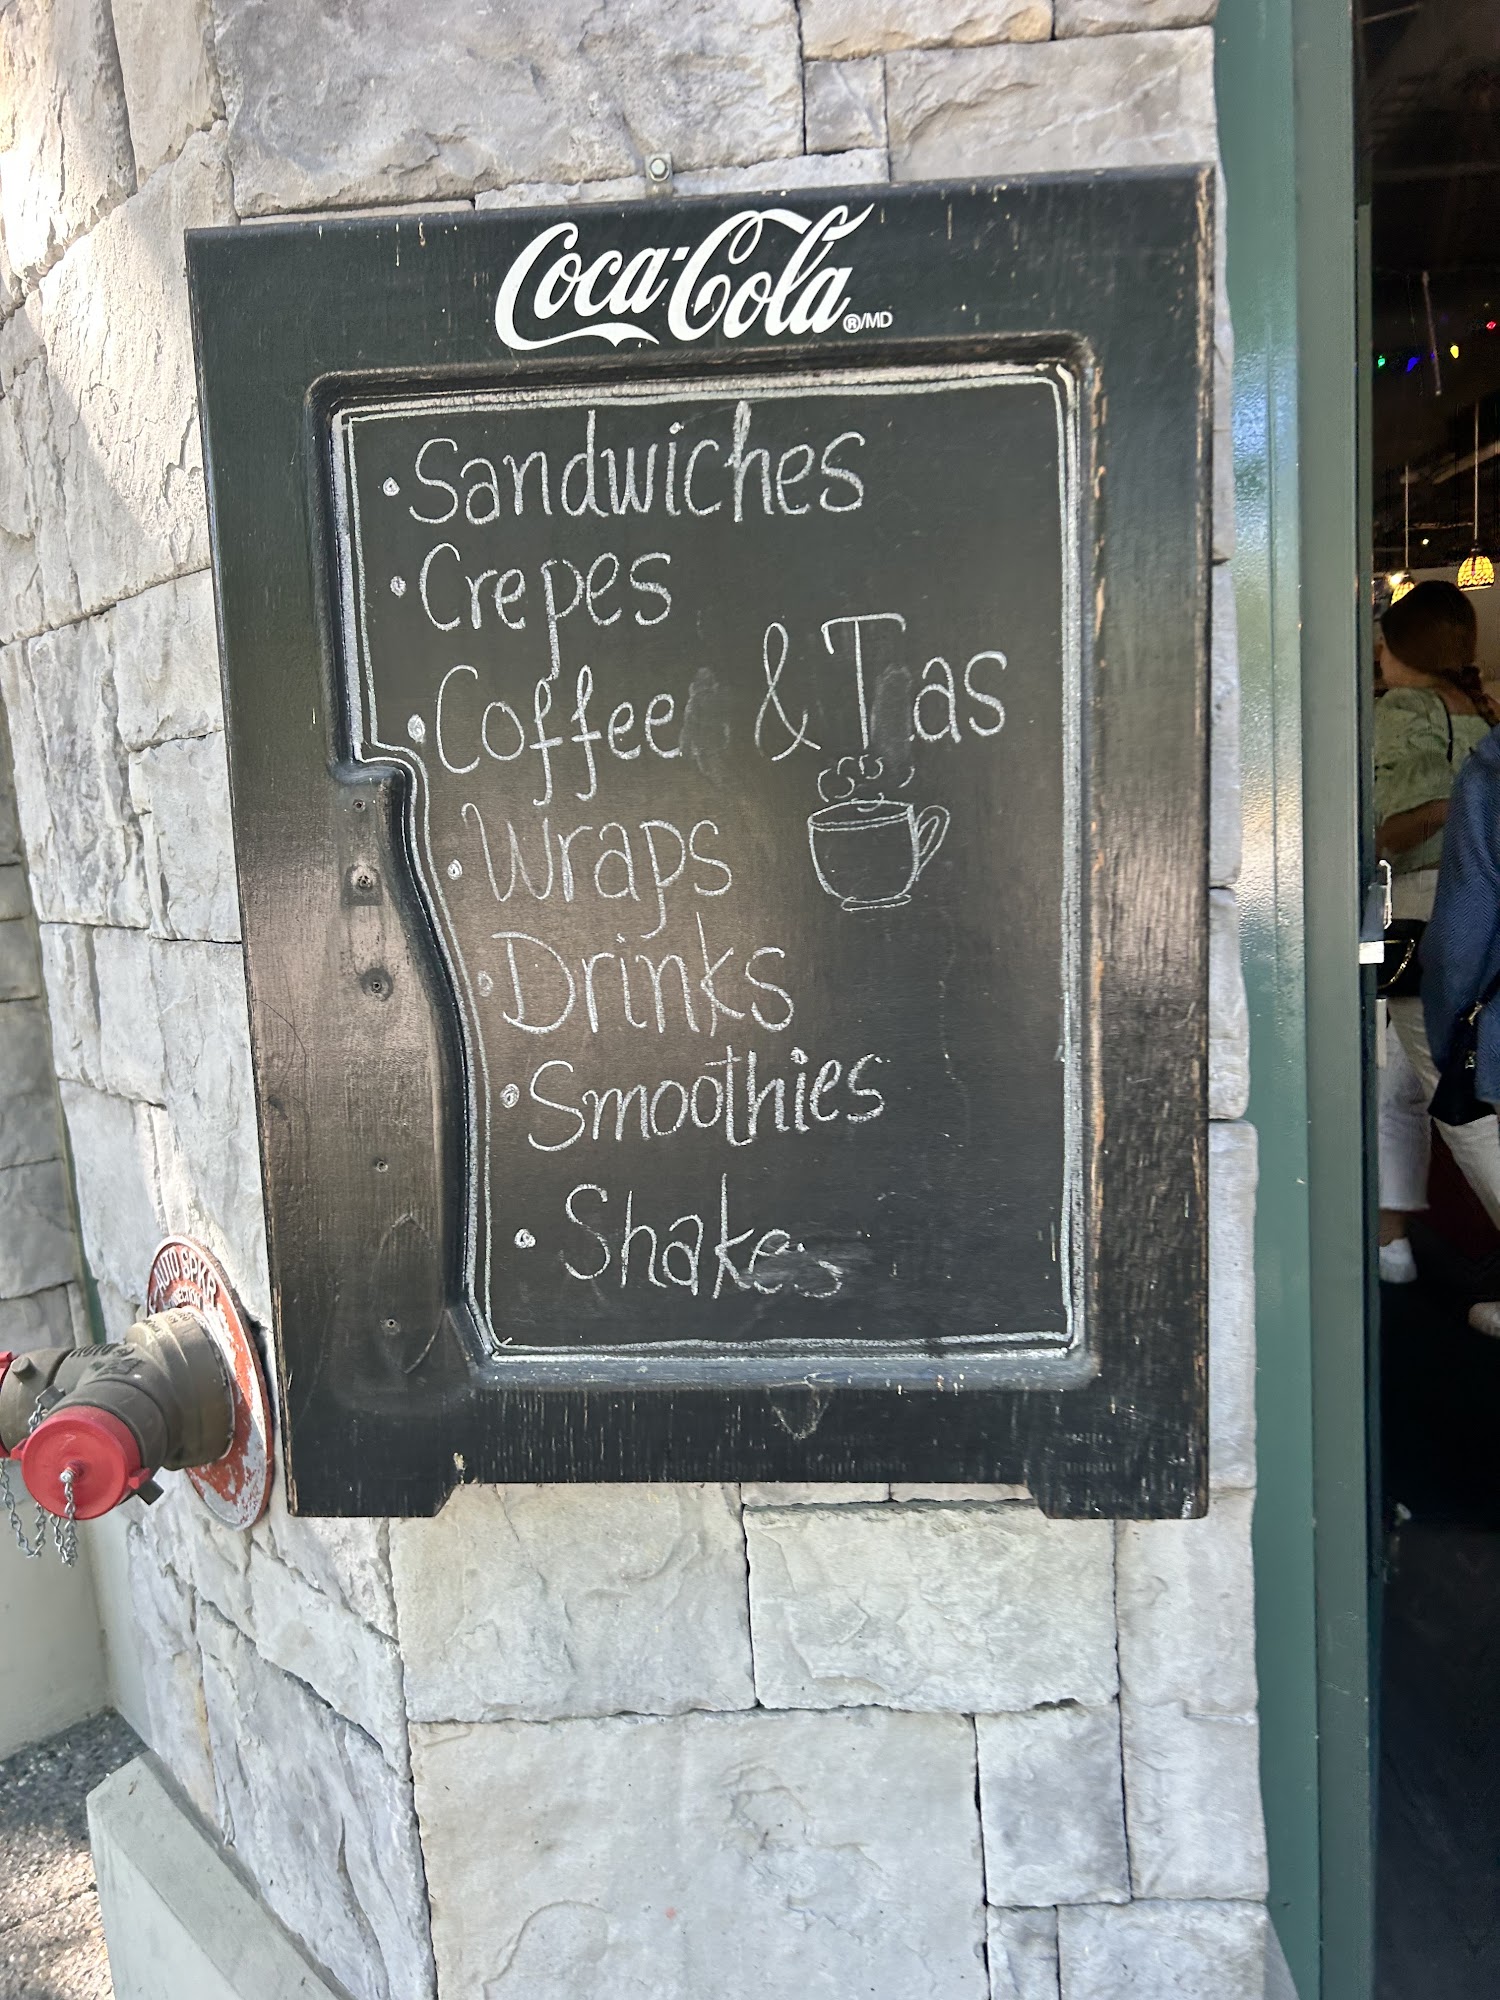 Coca-Cola ®/MD
• Sandwiches
• Crepes
• Coffee & T as
• Wraps
• Drinks
• Smoothies
• Shakes
AUTO SPKR